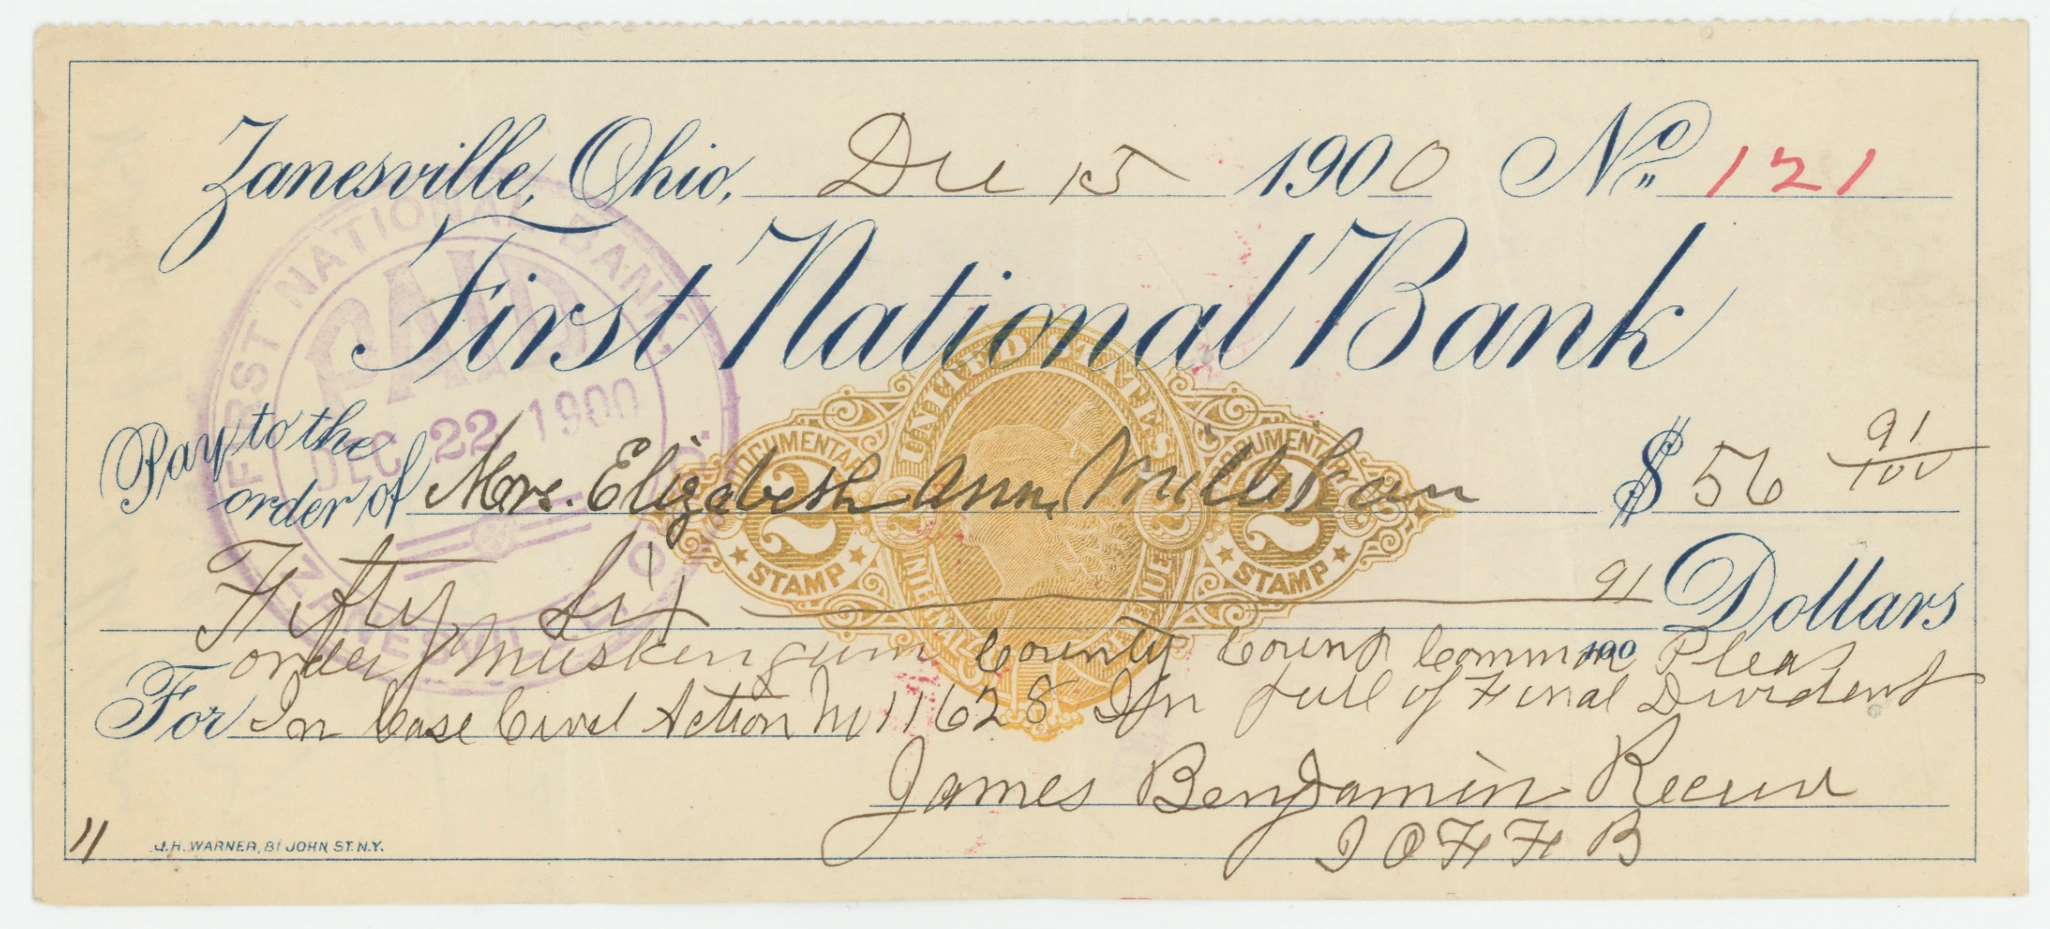 Zanesville, Ohio, Dec 15 1900 No. 121
First National Bank
Pay to the
order of Mrs. Elizabeth Ann Millikan $ 56 91/100
Fifty Six 91/100 Dollars
order of Muskingum County Court Common Pleas
For In Case Civil Action No 11628 In full of Final Dividend
James Benjamin
I O F F B
11
J.H. WARNER, 81 JOHN ST. N.Y.
FIRST NATIONAL BANK,
PAID
DEC 22 1900
ZANESVILLE, O.
UNITED STATES
DOCUMENTARY
2
STAMP
2
2
DOCUMENTARY
2
STAMP
INTERNAL REVENUE